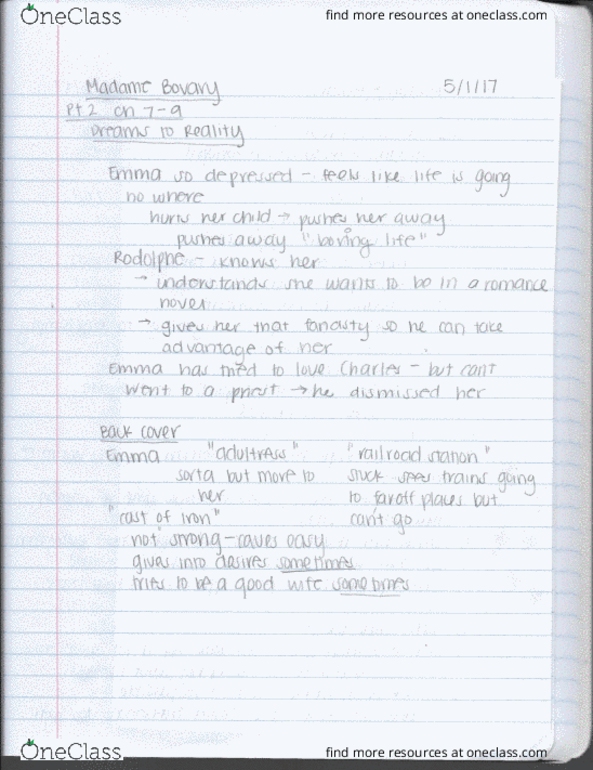 OneClass find more resources at oneclass.com
Madame Bovary 5/1/17
Pt 2 ch 7-9
Dreams to Reality
Emma so depressed - feels like life is going
no where
hurts her child → pushes her away
pushes away "boring life"
Rodolphe - knows her
→ understands she wants to be in a romance
novel
→ gives her that fanasty so he can take
advantage of her
Emma has tried to love Charles - but can't
went to a priest → he dismissed her
Back cover
Emma "adultress" "railroad station"
sorta but more to stuck sees trains going
her to far off places but
"cast of iron" can't go
not strong - caves easy
gives into desires sometimes
tries to be a good wife sometimes
OneClass find more resources at oneclass.com